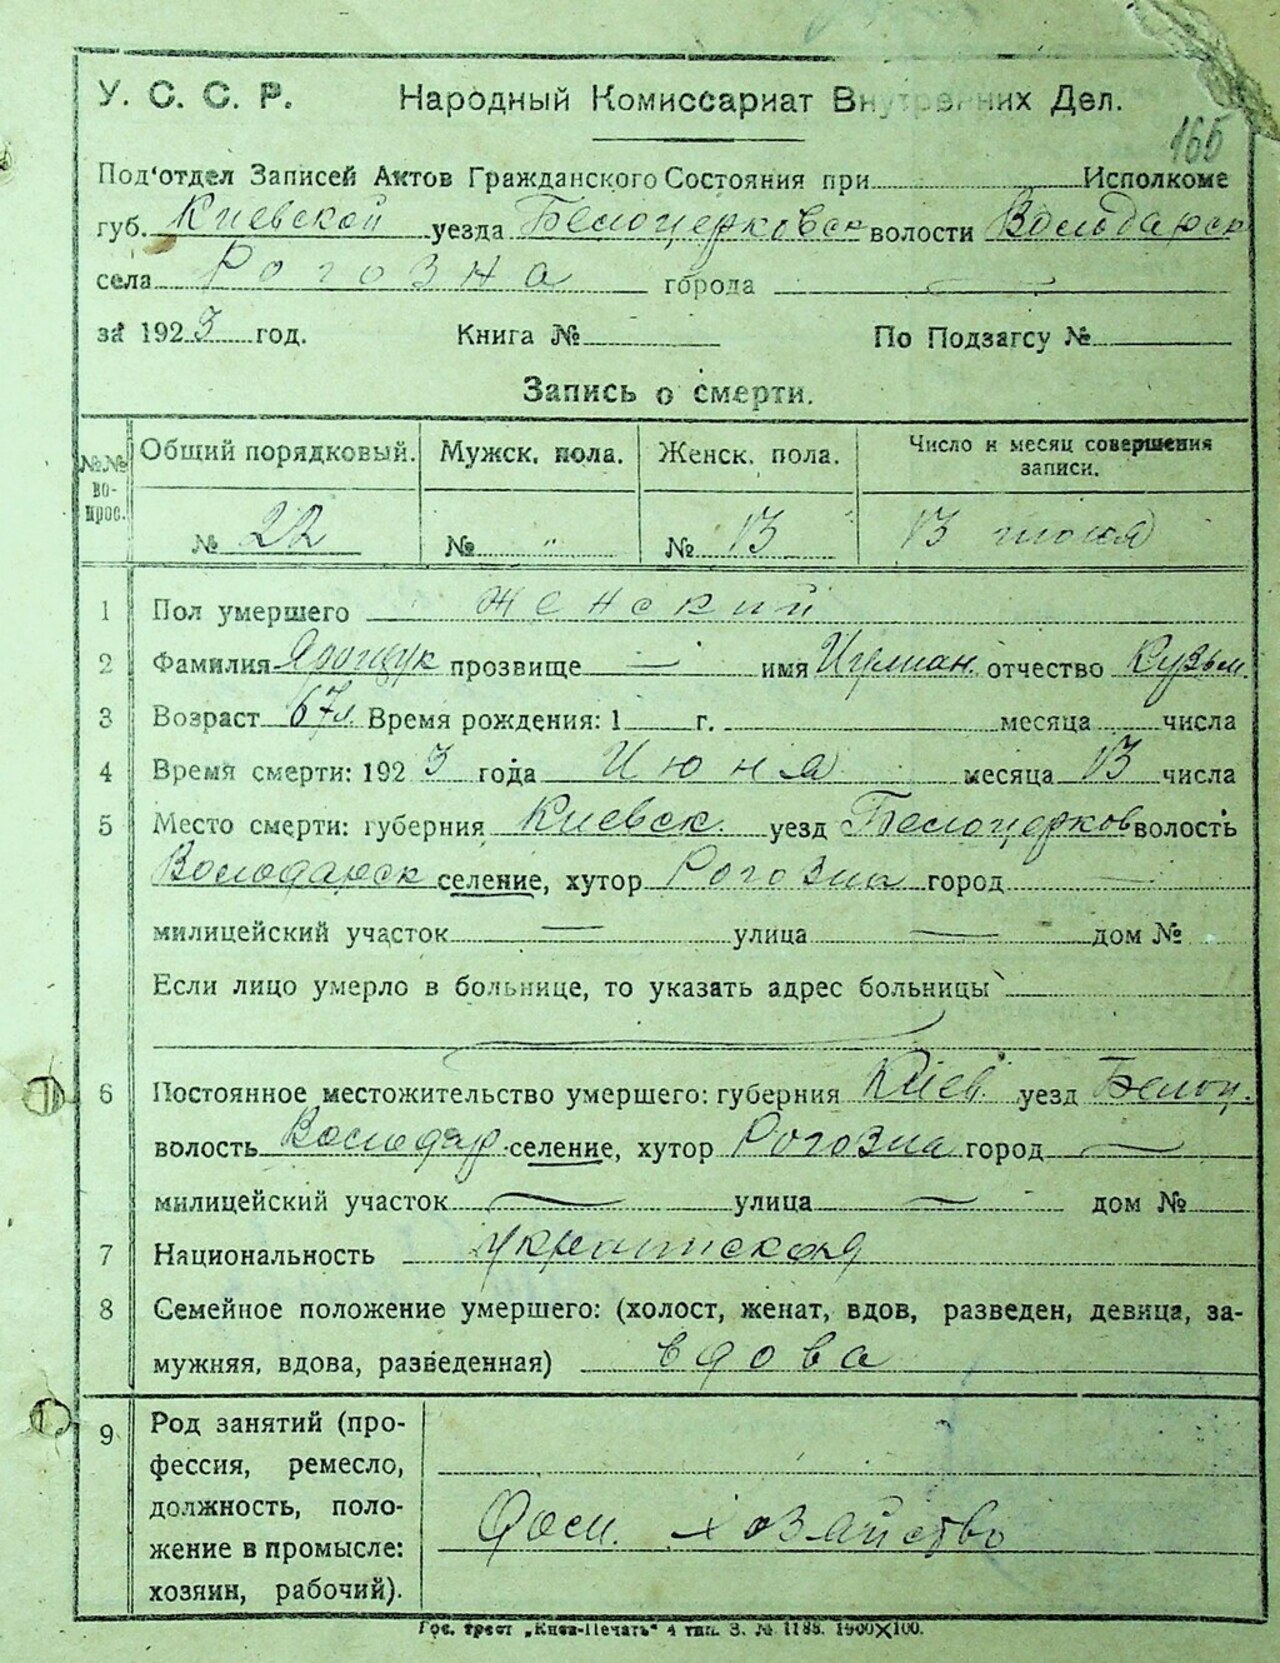 У. С. С. Р. Народный Комиссариат Внутренних Дел.
165
Под'отдел Записей Актов Гражданского Состояния при Исполкоме
губ. Киевской уезда Белоцерковск волости Володарск
села Рогозна города —
за 1923 год. Книга № По Подзагсу №
Запись о смерти.
№№ вопрос. Общий порядковый. Мужск. пола. Женск. пола. Число и месяц совершения записи.
№ 22 № „ № 13 13 июня
1 Пол умершего Женский
2 Фамилия Ярощук прозвище — имя отчество Кузьм.
3 Возраст 67 л. Время рождения: 1 г. месяца числа
4 Время смерти: 1923 года Июня месяца 13 числа
5 Место смерти: губерния Киевск. уезд Белоцерков волость
Володарск селение, хутор Рогозна город —
милицейский участок — улица — дом №
Если лицо умерло в больнице, то указать адрес больницы
6 Постоянное местожительство умершего: губерния Киев. уезд Белоц.
волость Володар селение, хутор Рогозна город —
милицейский участок — улица — дом №
7 Национальность украинская
8 Семейное положение умершего: (холост, женат, вдов, разведен, девица, за-
мужняя, вдова, разведенная) вдова
9 Род занятий (про-
фессия, ремесло,
должность, поло-
жение в промысле:
хозяин, рабочий).
Дом. хозяйство
Гос. трест „Киев-Печать“ 4 тип. З. № 1188. 1900×100.